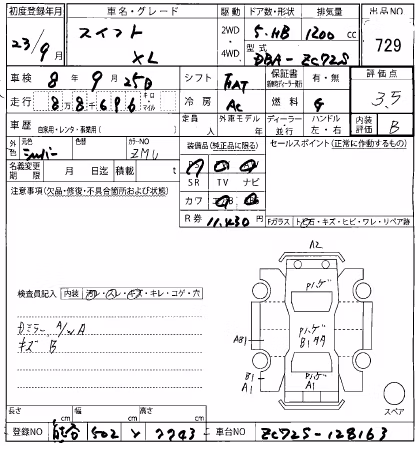 初度登録年月 車名・グレード 駆動 ドア数・形状 排気量 出品NO
23/9月 スイフト XL 2WD・4WD 5・HB 1200cc 729
型式 DBA-ZC72S
車検 8年9月25日 シフト FAT 保証書 有・無 評価点 3.5
走行 88686 キロ・マイル 冷房 AC 燃料 G
車歴 自家用・レンタ・事業用( ) 定員 人 外車モデル 年 ディーラー・並行 ハンドル 左・右 内装評価 B
外色 元色 シルバー 色替 カラーNO ZMU 装備品(純正品に限る) セールスポイント(正常に作動するもの)
名義変更期限 月 日迄 積載 t SR TV ナビ
注意事項(欠品・修復・不具合箇所および状態) カワ
R券 11,430円 Fガラス トビ石・キズ・ヒビ・ワレ・リペア跡
A2
検査員記入 内装 汚レ・スレ・キズ・キレ・コゲ・穴
ミラー A/A
キズ B
Pハゲ
AB1
Pハゲ
B1
B1
A1
Pハゲ
A1
スペア
長さ cm 幅 cm 高さ cm
登録NO 熊谷 502 と 7743 車台NO ZC72S-128163